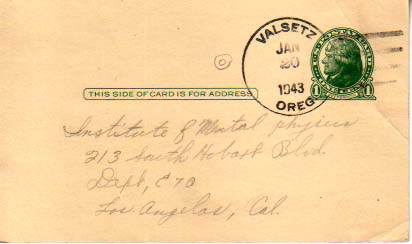 VALSETZ
JAN
20
1943
OREG
U.S. POSTAGE
1 CENT 1
THIS SIDE OF CARD IS FOR ADDRESS
Institute of Mental Physics
213 South Hobart Blvd.
Dept, E 70
Los Angelos, Cal.